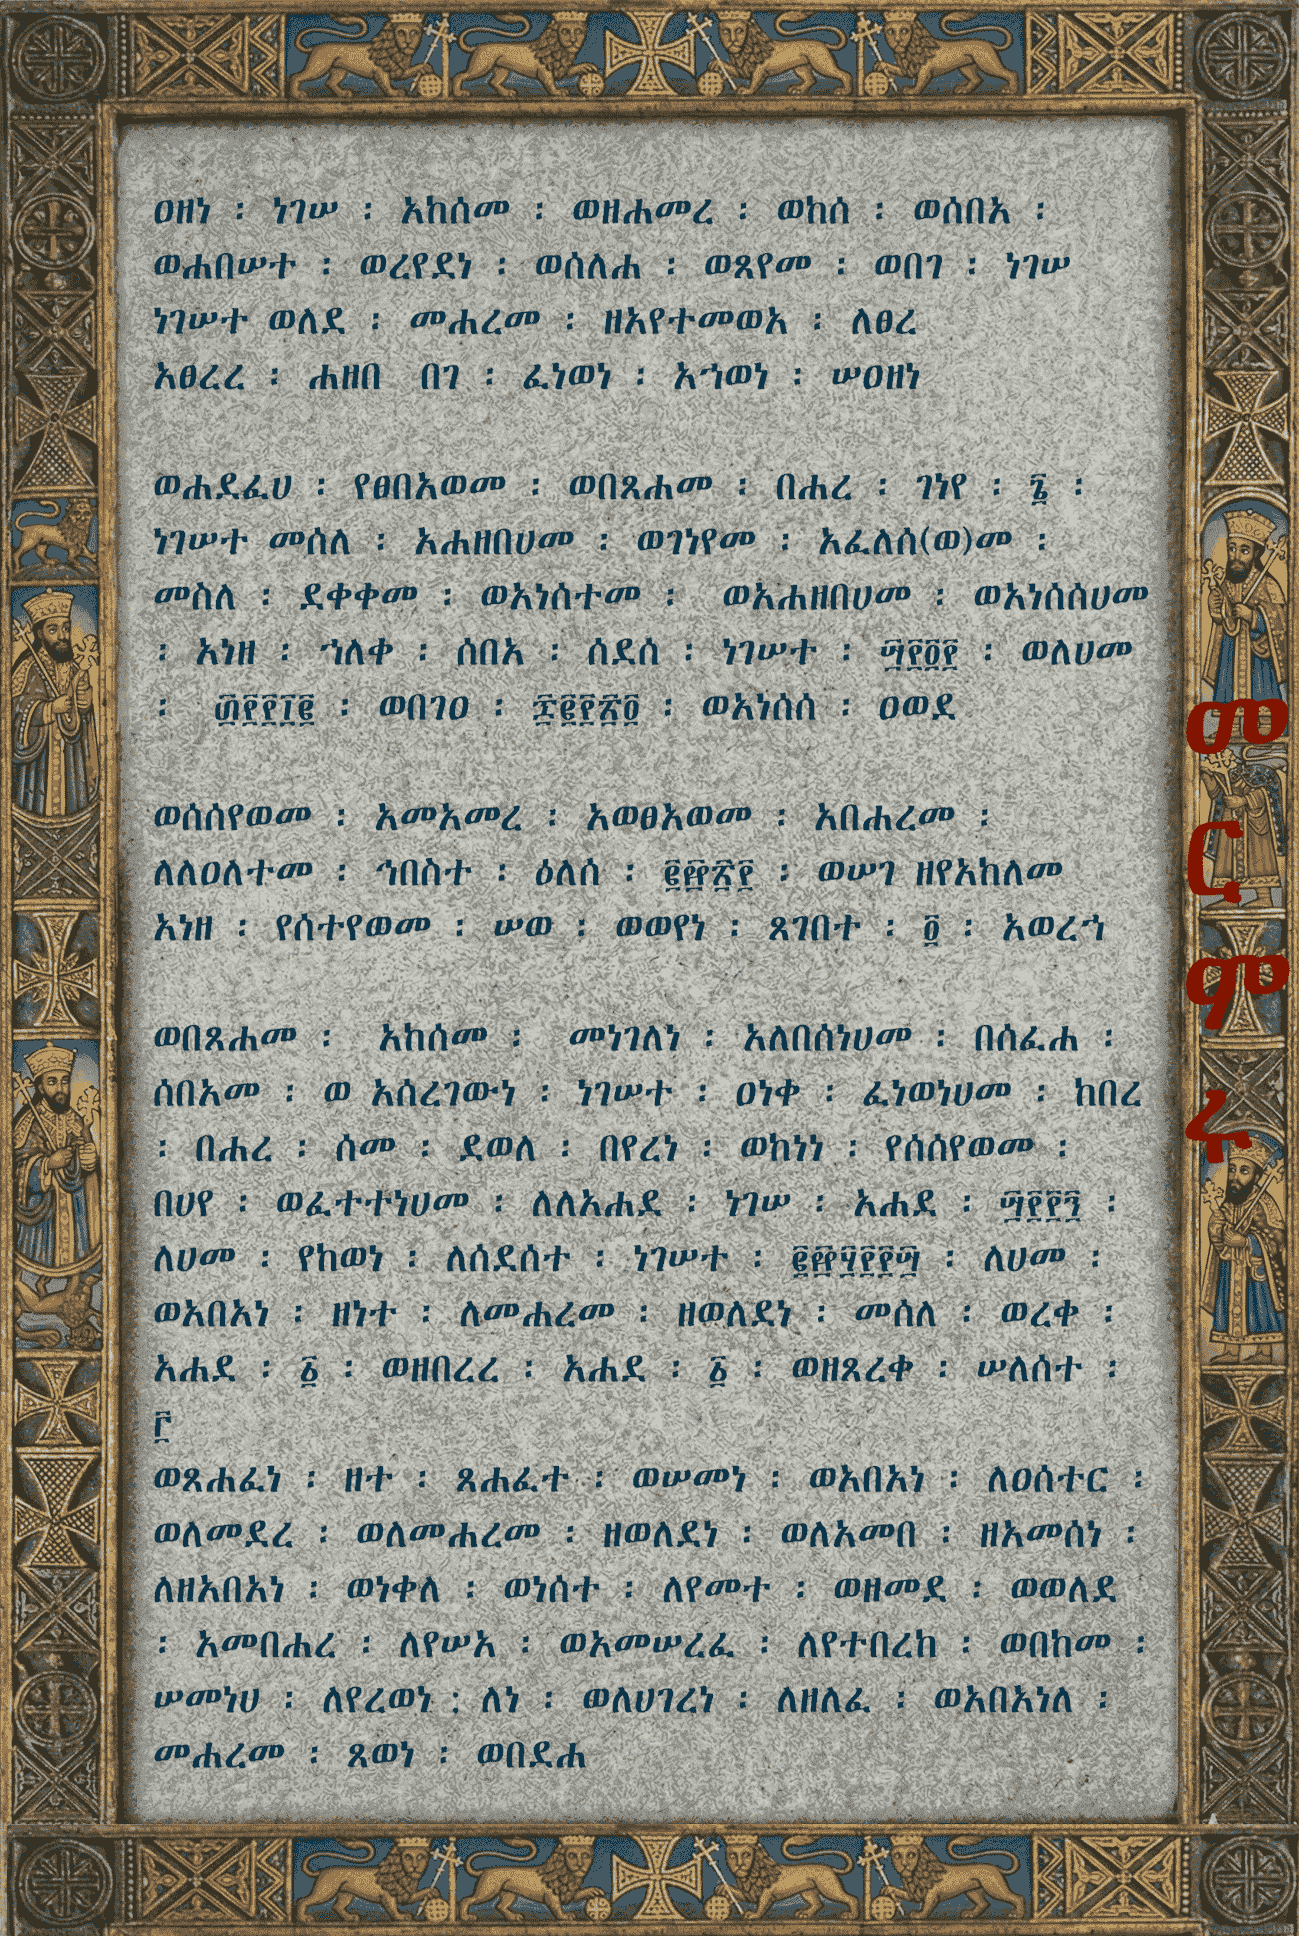 ዐዘነ ፡ ነገሠ ፡ አከሰመ ፡ ወዘሐመረ ፡ ወከሰ ፡ ወሰበአ ፡
ወሐበሠተ ፡ ወረየደነ ፡ ወሰለሐ ፡ ወጸየመ ፡ ወበገ ፡ ነገሠ
ነገሠተ ወለደ ፡ መሐረመ ፡ ዘአየተመወአ ፡ ለፀረ
አፀረረ ፡ ሐዘበ በገ ፡ ፈነወነ ፡ አኀወነ ፡ ሠዐዘነ
ወሐደፈሀ ፡ የፀበአወመ ፡ ወበጸሐመ ፡ በሐረ ፡ ገነየ ፡ ፮ ፡
ነገሠተ መሰለ ፡ አሐዘበሀመ ፡ ወገነየመ ፡ አፈለሰ(ወ)መ ፡
መስለ ፡ ደቀቀመ ፡ ወአነሰተመ ፡ ወአሐዘበሀመ ፡ ወአነሰሰሀመ
፡ አነዘ ፡ ኀለቀ ፡ ሰበአ ፡ ሰደሰ ፡ ነገሠተ ፡ ፵፻፬፻ ፡ ወለሀመ
፡ ፴፻፻፲፪ ፡ ወበገዐ ፡ ፷፪፻፳፬ ፡ ወአነሰሰ ፡ ዐወደ
ወሰሰየወመ ፡ አመአመረ ፡ አወፀአወመ ፡ አበሐረመ ፡
ለለዐለተመ ፡ ኅበስተ ፡ ዕለሰ ፡ ፪፼፳፻ ፡ ወሠገ ዘየአከለመ
አነዘ ፡ የሰተየወመ ፡ ሠወ ፡ ወወየነ ፡ ጸገበተ ፡ ፬ ፡ አወረኀ
ወበጸሐመ ፡ አከሰመ ፡ መነገለነ ፡ አለበሰነሀመ ፡ በሰፈሐ ፡
ሰበአመ ፡ ወ አሰረገውነ ፡ ነገሠተ ፡ ዐነቀ ፡ ፈነወነሀመ ፡ ከበረ
፡ በሐረ ፡ ሰመ ፡ ደወለ ፡ በየረነ ፡ ወከነነ ፡ የሰሰየወመ ፡
በሀየ ፡ ወፈተተነሀመ ፡ ለለአሐደ ፡ ነገሠ ፡ አሐደ ፡ ፵፻፻፯ ፡
ለሀመ ፡ የከወነ ፡ ለሰደሰተ ፡ ነገሠተ ፡ ፪፼፶፻፻፵ ፡ ለሀመ ፡
ወአበአነ ፡ ዘነተ ፡ ለመሐረመ ፡ ዘወለደነ ፡ መሰለ ፡ ወረቀ ፡
አሐደ ፡ ፩ ፡ ወዘበረረ ፡ አሐደ ፡ ፩ ፡ ወዘጸረቀ ፡ ሠለሰተ ፡
፫
ወጸሐፈነ ፡ ዘተ ፡ ጸሐፈተ ፡ ወሠመነ ፡ ወአበአነ ፡ ለዐሰተር ፡
ወለመደረ ፡ ወለመሐረመ ፡ ዘወለደነ ፡ ወለአመበ ፡ ዘአመሰነ ፡
ለዘአበአነ ፡ ወነቀለ ፡ ወነሰተ ፡ ለየመተ ፡ ወዘመደ ፡ ወወለደ
፡ አመበሐረ ፡ ለየሠአ ፡ ወአመሠረፈ ፡ ለየተበረከ ፡ ወበከመ ፡
ሠመነሀ ፡ ለየረወነ ፡ ለነ ፡ ወለሀገረነ ፡ ለዘለፈ ፡ ወአበአነለ ፡
መሐረመ ፡ ጸወነ ፡ ወበደሐ
መ
ር
ም
ሩ